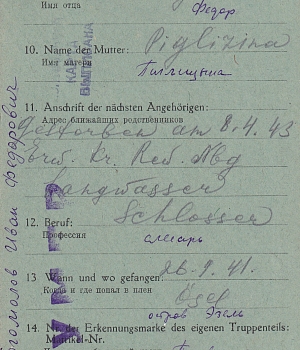 Имя отца
Федор
10. Name der Mutter: Piglizina
Имя матери
Пиглицына
11. Anschrift der nächsten Angehörigen:
Адрес ближайших родственников
Gestorben am 8.4.43
Kr. Res. Nbg
Langwasser
12. Beruf: Schlosser
Профессия
слесарь
13 Wann und wo gefangen: 26.9.41.
Когда и где попал в плен
Ösel
остров Эзель
14. Nr. der Erkennungsmarke des eigenen Truppenteils:
Matrikel-Nr.
Иван Федорович
УМЕР